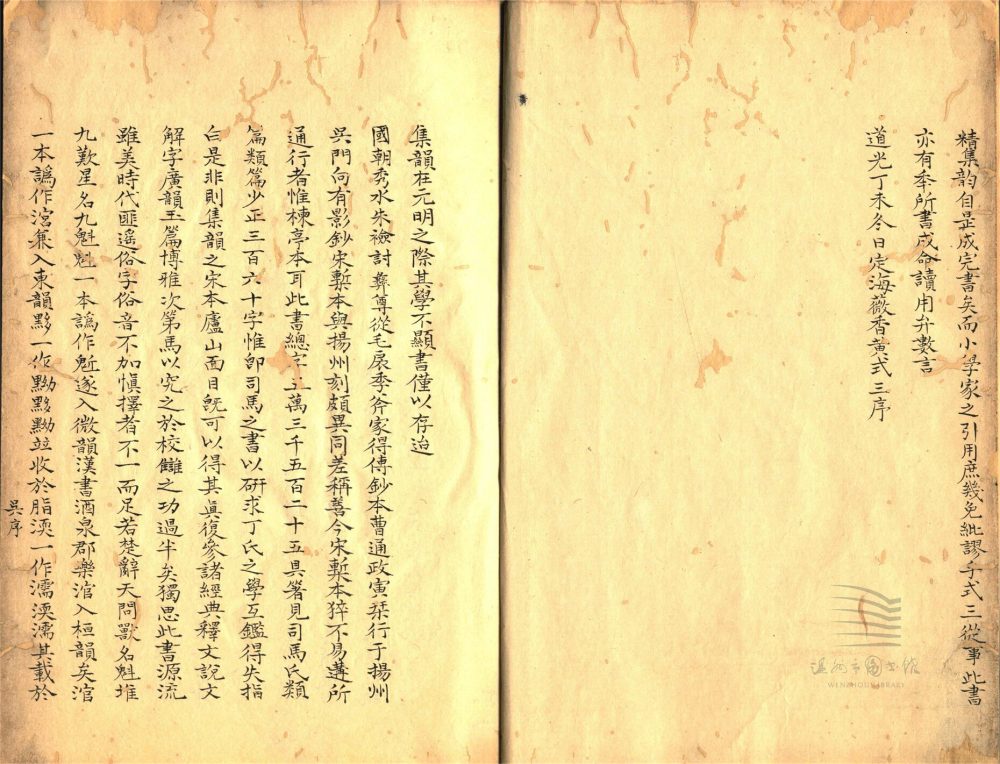 精集韵自是成完書矣而小學家之引用庶幾免紕謬乎式三從事此書
亦有年所書成命讀用弁數言
道光丁未冬日定海薇香黄式三序
集韻在元明之際其學不顯書僅以存迨
國朝秀水朱檢討彝尊從毛扆季斧家得傳鈔本曹通政寅栞行于揚州
吳門向有影鈔宋槧本與揚州刻頗異同差稱善今宋槧本猝不易遘所
通行者惟楝亭本耳此書總字五萬三千五百二十五具箸見司馬氏類
篇類篇少正三百六十字惟卽司馬之書以研求丁氏之學互鑑得失指
白是非則集韻之宋本廬山面目旣可以得其眞復參諸經典釋文說文
解字廣韻玉篇博雅次第焉以究之於校讎之功過半矣獨思此書源流
雖美時代匪遥俗字俗音不加愼擇者不一而足若楚辭天問獸名魁堆
九歎星名九魁魁一本譌作鬿遂入微韻漢書酒泉郡樂涫入桓韻矣涫
一本譌作涫兼入東韻黟一作黝黟黝竝收於脂渜一作濡渜濡其載於
吳序
溫州市圖書館
WENZHOU LIBRARY